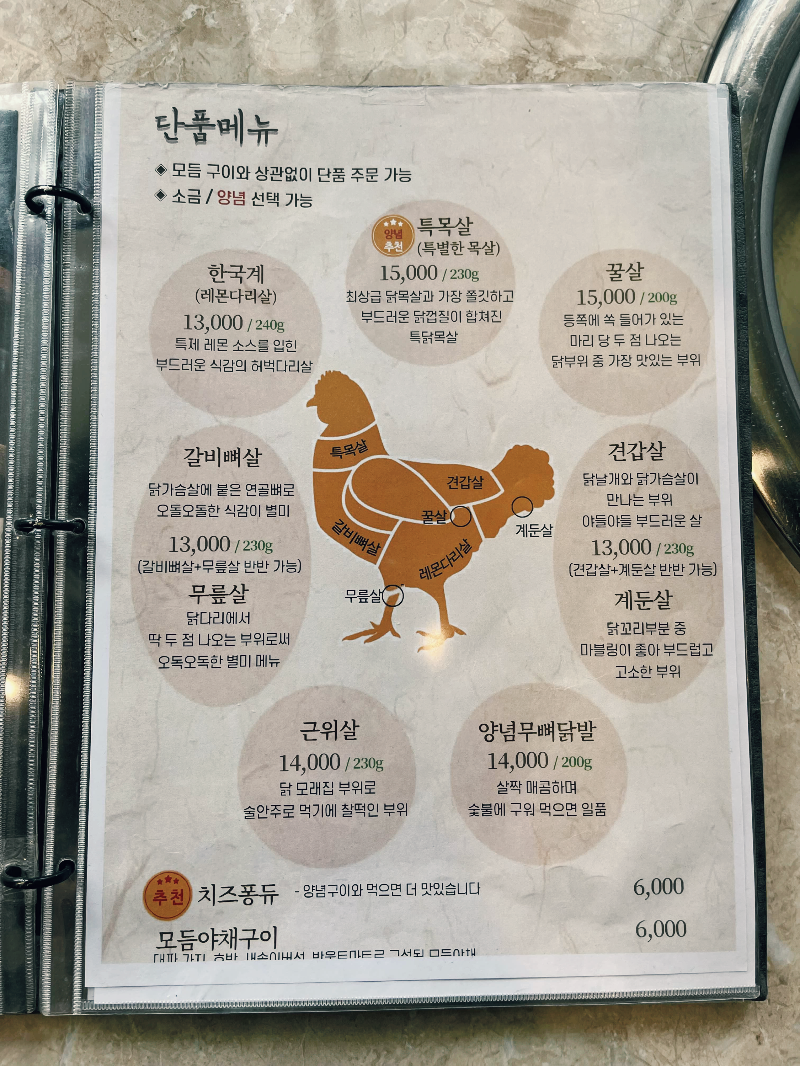 단품메뉴
◈ 모듬 구이와 상관없이 단품 주문 가능
◈ 소금 / 양념 선택 가능
양념
추천
특목살
(특별한 목살)
15,000 / 230g
최상급 닭목살과 가장 쫄깃하고
부드러운 닭껍질이 합쳐진
특닭목살
한국계
(레몬다리살)
13,000 / 240g
특제 레몬 소스를 입힌
부드러운 식감의 허벅다리살
꿀살
15,000 / 200g
등쪽에 쏙 들어가 있는
마리 당 두 점 나오는
닭부위 중 가장 맛있는 부위
갈비뼈살
닭가슴살에 붙은 연골뼈로
오돌오돌한 식감이 별미
13,000 / 230g
(갈비뼈살+무릎살 반반 가능)
무릎살
닭다리에서
딱 두 점 나오는 부위로써
오독오독한 별미 메뉴
특목살
견갑살
꿀살
계둔살
갈비뼈살
레몬다리살
무릎살
견갑살
닭날개와 닭가슴살이
만나는 부위
야들야들 부드러운 살
13,000 / 230g
(견갑살+계둔살 반반 가능)
계둔살
닭꼬리부분 중
마블링이 좋아 부드럽고
고소한 부위
근위살
14,000 / 230g
닭 모래집 부위로
술안주로 먹기에 찰떡인 부위
양념무뼈닭발
14,000 / 200g
살짝 매콤하며
숯불에 구워 먹으면 일품
추천 치즈퐁듀 - 양념구이와 먹으면 더 맛있습니다 6,000
모듬야채구이 6,000
대파, 가지, 호박, 새송이버섯, 방울토마토로 구성된 모듬야채